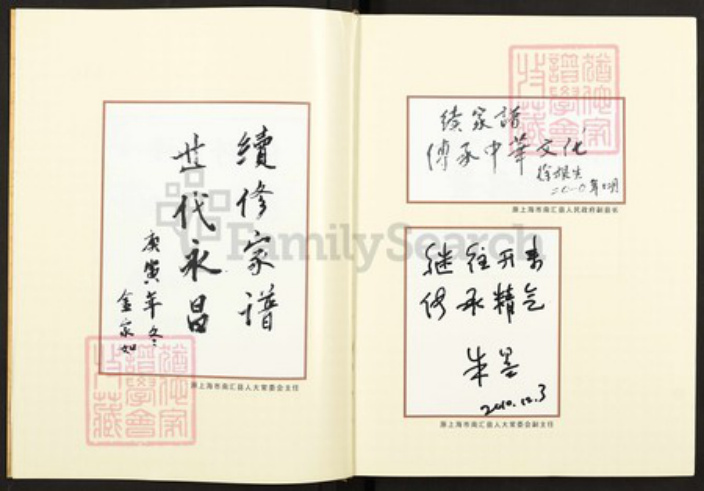 續修家谱
世代永昌
庚寅年冬
金家如
原上海市南汇县人大常委会主任
续家谱
傅承中華文化
徐根生
二〇一〇年十二月
原上海市南汇县人民政府副县长
继往开来
传承精气
朱墨
2010.12.3
原上海市南汇县人大常委会副主任
FamilySearch
譜學會
收藏